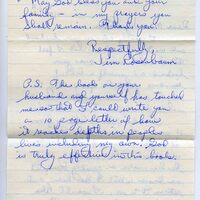 May God bless you and your
family - in my prayers you
shall remain. Thank you.
Respectfully,
Jim
P.S. The book on your
husband and yourself has touched
me so that I could write you
a 10 page letter of how
it reaches depths in peoples
lives including my own. God
is truly effective in this book.